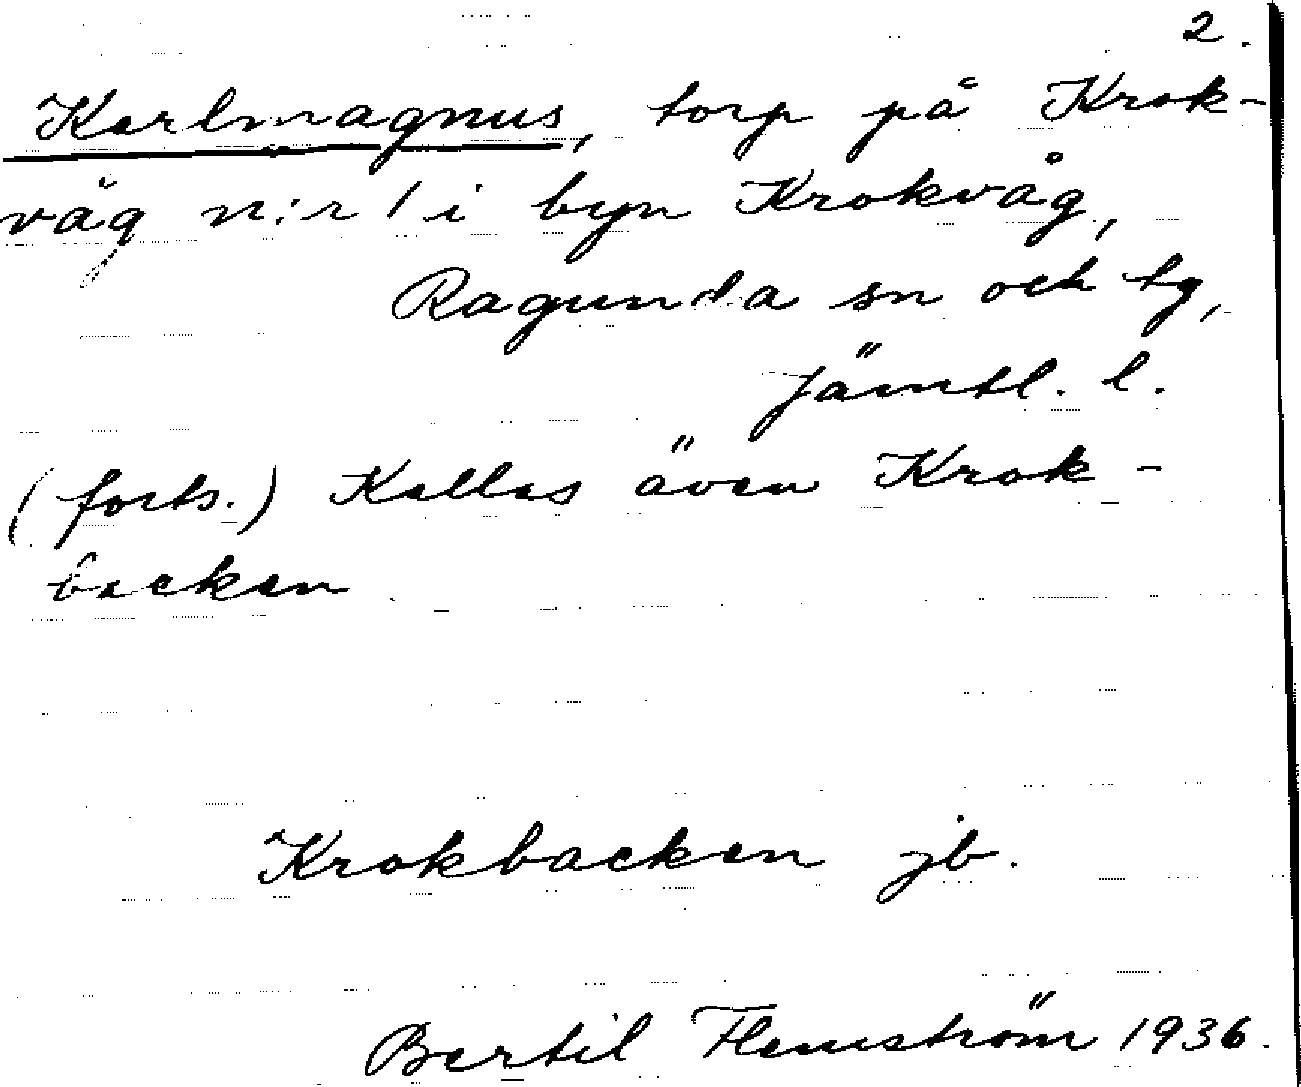 2.
Karlmagnus, torp på Krok-
våg n:r 1 i byn Krokvåg,
Ragunda sn och tg,
Jämtl. l.
(forts.) Kallas även Krok-
backen
Krokbacken jb.
Bertil Flemström 1936.